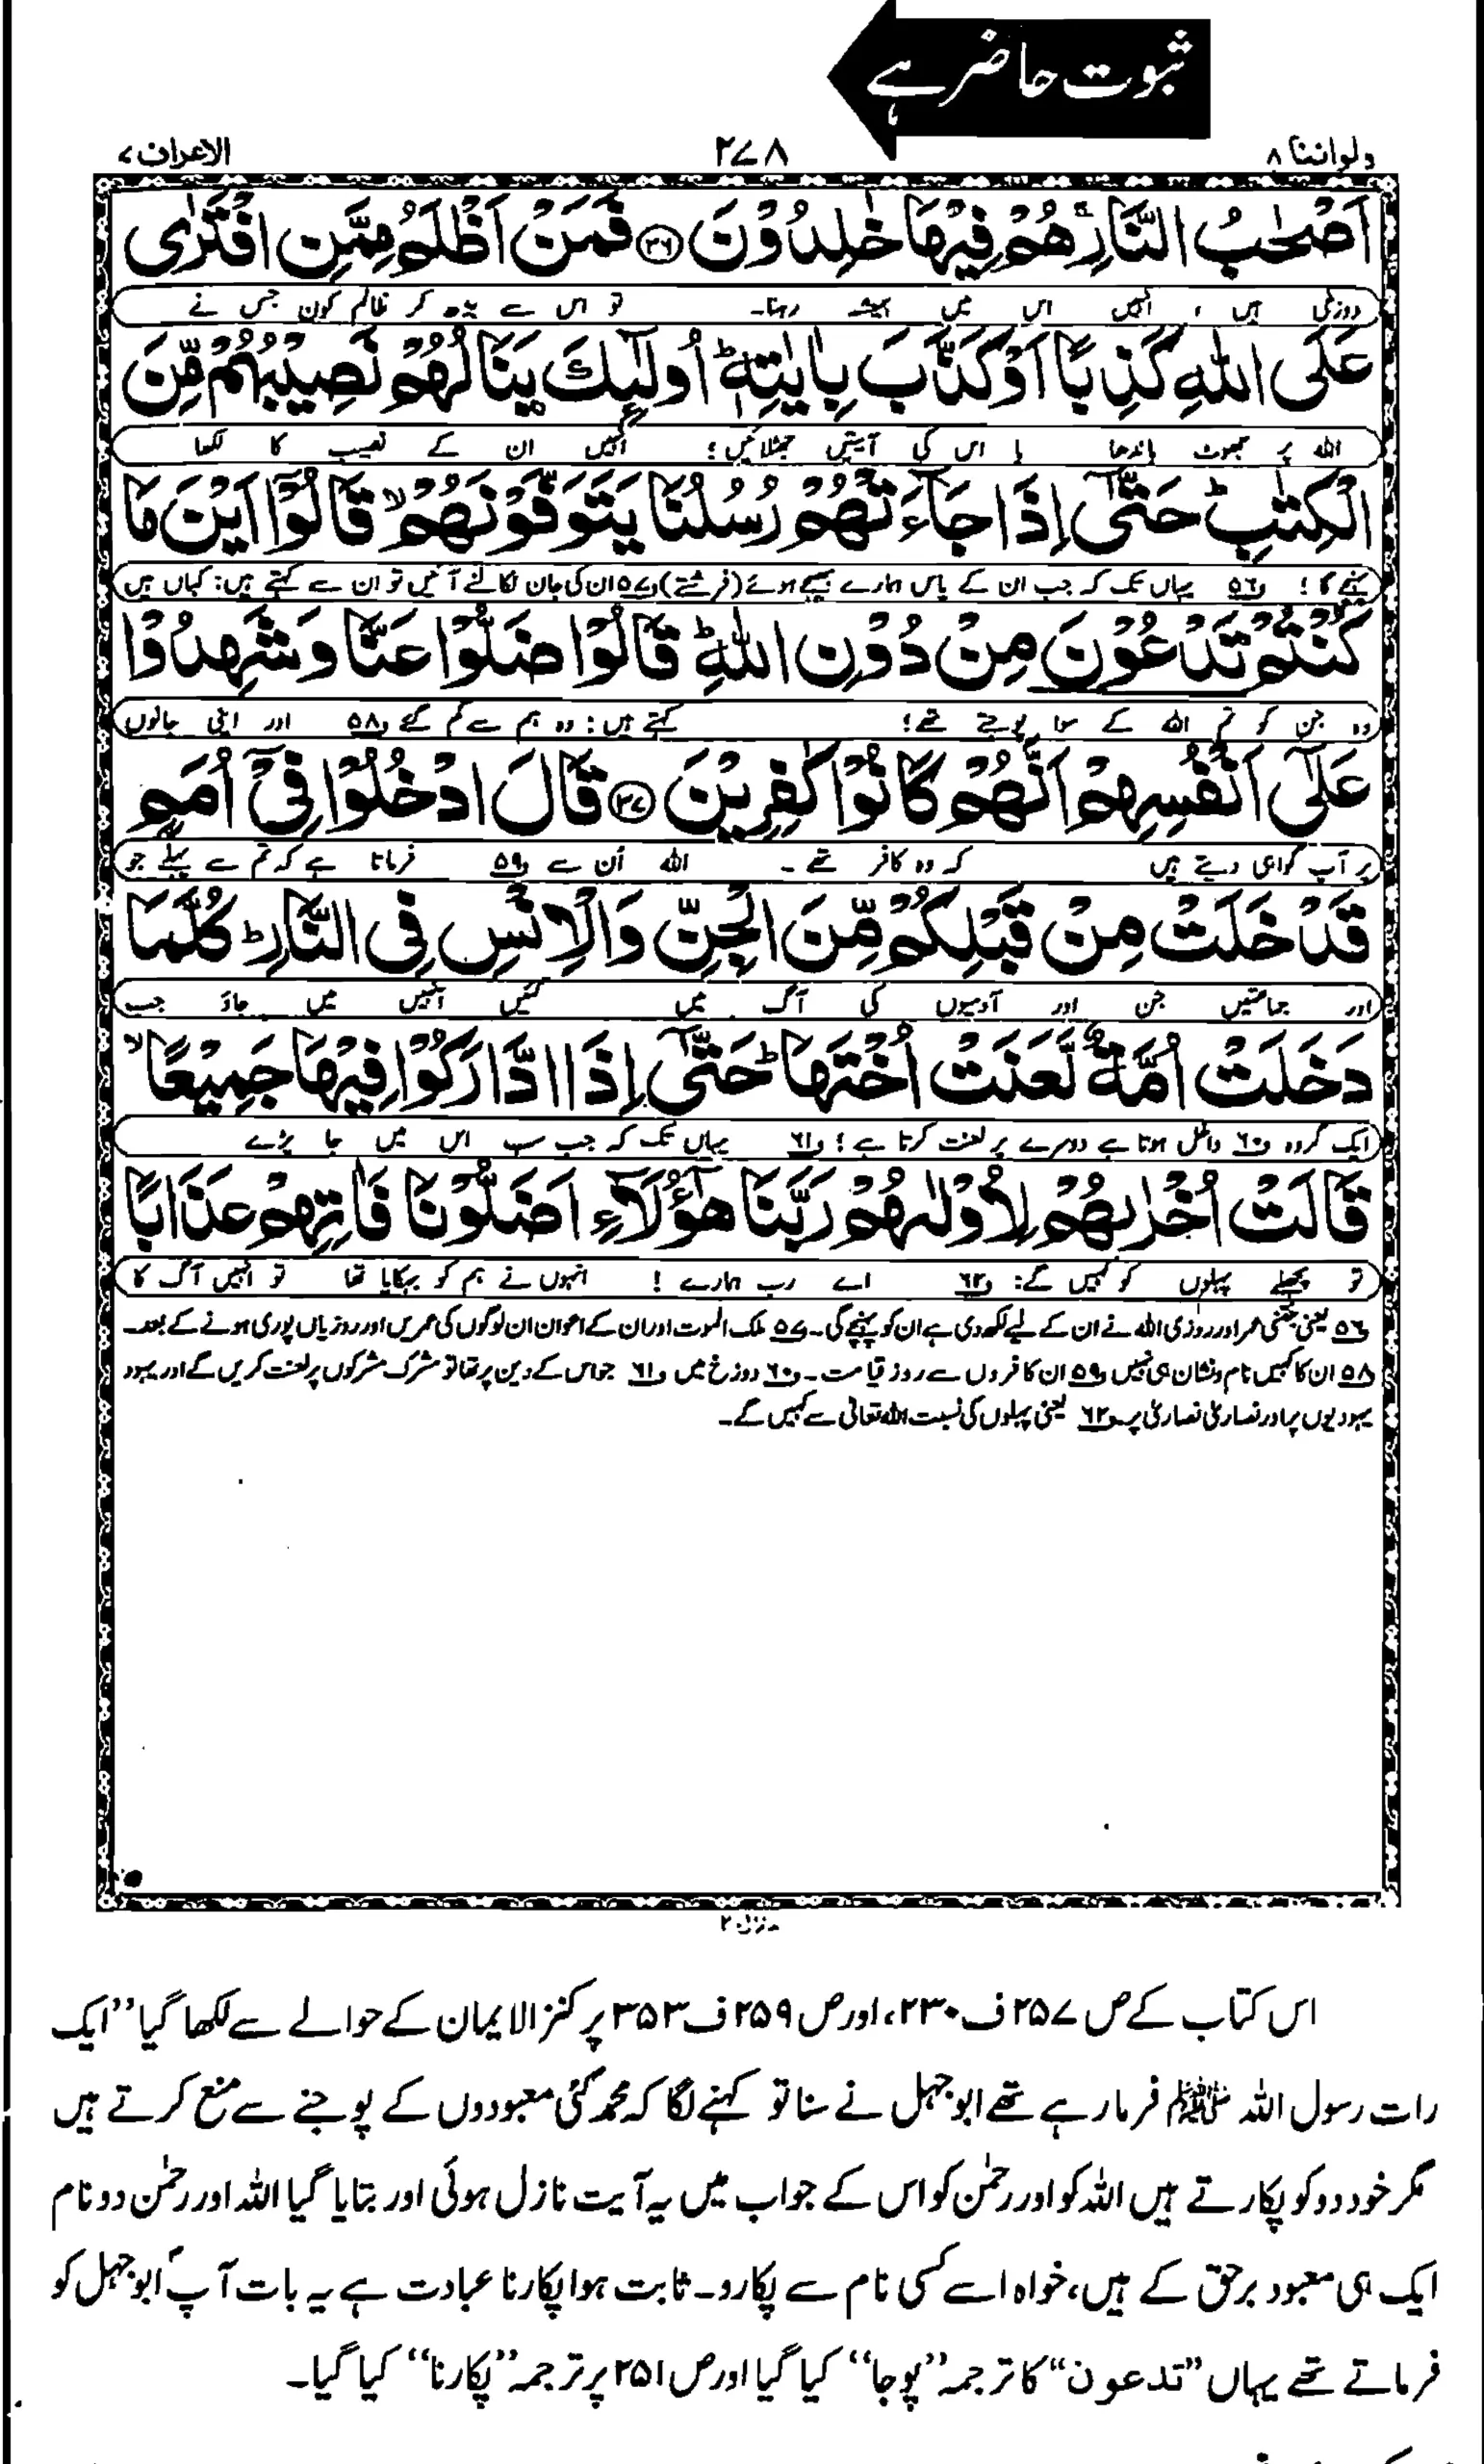 ثبوت حاضر ہے
ولواننا ٨ ٢٧٨ الاعراف ٧
اَصْحٰبُ النَّارِ ۚ هُمْ فِیْهَا خٰلِدُوْنَ ﴿٣٦﴾ فَمَنْ اَظْلَمُ مِمَّنِ افْتَرٰی
دوزخی ہیں ، انہیں اس میں ہمیشہ رہنا۔ تو اس سے بڑھ کر ظالم کون جس نے
عَلَی اللّٰهِ كَذِبًا اَوْ كَذَّبَ بِاٰیٰتِهٖ ؕ اُولٰٓئِكَ یَنَالُهُمْ نَصِیْبُهُمْ مِّنَ
اللہ پر جھوٹ باندھا یا اس کی آیتیں جھٹلائیں؛ انہیں ان کے نصیب کا لکھا
الْكِتٰبِ ؕ حَتّٰۤی اِذَا جَآءَتْهُمْ رُسُلُنَا یَتَوَفَّوْنَهُمْ ۙ قَالُوْۤا اَیْنَ مَا
پہنچے گا؛ ف۵۶ یہاں تک کہ جب ان کے پاس ہمارے بھیجے ہوئے (فرشتے) ف۵۷ ان کی جان نکالنے آئیں تو ان سے کہتے ہیں: کہاں ہیں
كُنْتُمْ تَدْعُوْنَ مِنْ دُوْنِ اللّٰهِ ؕ قَالُوْا ضَلُّوْا عَنَّا وَ شَهِدُوْا
وہ جن کو تم اللہ کے سوا پوجتے تھے؛ کہتے ہیں: وہ ہم سے گم گئے ف۵۸ اور اپنی جانوں
عَلٰۤی اَنْفُسِهِمْ اَنَّهُمْ كَانُوْا كٰفِرِیْنَ ﴿٣٧﴾ قَالَ ادْخُلُوْا فِیْۤ اُمَمٍ
پر آپ گواہی دیتے ہیں کہ وہ کافر تھے ۔ اللہ اُن سے ف۵۹ فرماتا ہے کہ تم سے پہلے جو
قَدْ خَلَتْ مِنْ قَبْلِكُمْ مِّنَ الْجِنِّ وَ الْاِنْسِ فِی النَّارِ ؕ كُلَّمَا
اور جماعتیں جن اور آدمیوں کی آگ میں گئیں انہیں میں جاؤ جب
دَخَلَتْ اُمَّةٌ لَّعَنَتْ اُخْتَهَا ؕ حَتّٰۤی اِذَا ادَّارَكُوْا فِیْهَا جَمِیْعًا ۙ
ایک گروہ ف۶۰ داخل ہوتا ہے دوسرے پر لعنت کرتا ہے؛ ف۶۱ یہاں تک کہ جب سب اس میں جا پڑے
قَالَتْ اُخْرٰىهُمْ لِاُوْلٰىهُمْ رَبَّنَا هٰۤؤُلَآءِ اَضَلُّوْنَا فَاٰتِهِمْ عَذَابًا
تو پچھلے پہلوں کو کہیں گے: ف۶۲ اے رب ہمارے ! انہوں نے ہم کو بہکایا تھا تو انہیں آگ کا
ف۵۶ یعنی جتنی عمر اور روزی اللہ نے ان کے لیے لکھ دی ہے ان کو پہنچے گی۔ ف۵۷ ملک الموت اور ان کے اعوان ان لوگوں کی عمریں اور روزیاں پوری ہونے کے بعد۔
ف۵۸ ان کا کہیں نام و نشان ہی نہیں ف۵۹ ان کافروں سے روز قیامت۔ ف۶۰ دوزخ میں ف۶۱ جو اس کے دین پر تھا تو مشرک مشرکوں پر لعنت کریں گے اور یہود
یہودیوں پر اور نصاریٰ نصاریٰ پر۔ ف۶۲ یعنی پہلوں کی نسبت اللہ تعالیٰ سے کہیں گے۔
منزل ٢
اس کتاب کے ص ۲۵۷ ف ۲۳۰، اور ص ۲۵۹ ف ۳۵۳ پر کنز الایمان کے حوالے سے لکھا گیا ”ایک
رات رسول اللہ ﷺ فرما رہے تھے ابو جہل نے سنا تو کہنے لگا کہ محمد کئی معبودوں کے پوجنے سے منع کرتے ہیں
مگر خود دو کو پکارتے ہیں اللہ کو اور رحمٰن کو اس کے جواب میں یہ آیت نازل ہوئی اور بتایا گیا اللہ اور رحمٰن دو نام
ایک ہی معبود برحق کے ہیں، خواہ اسے کسی نام سے پکارو۔ ثابت ہوا پکارنا عبادت ہے یہ بات آپؐ ابو جہل کو
فرماتے تھے یہاں ”تدعون“ کا ترجمہ ”پوجا“ کیا گیا اور ص ۲۵۱ پر ترجمہ ”پکارنا“ کیا گیا۔